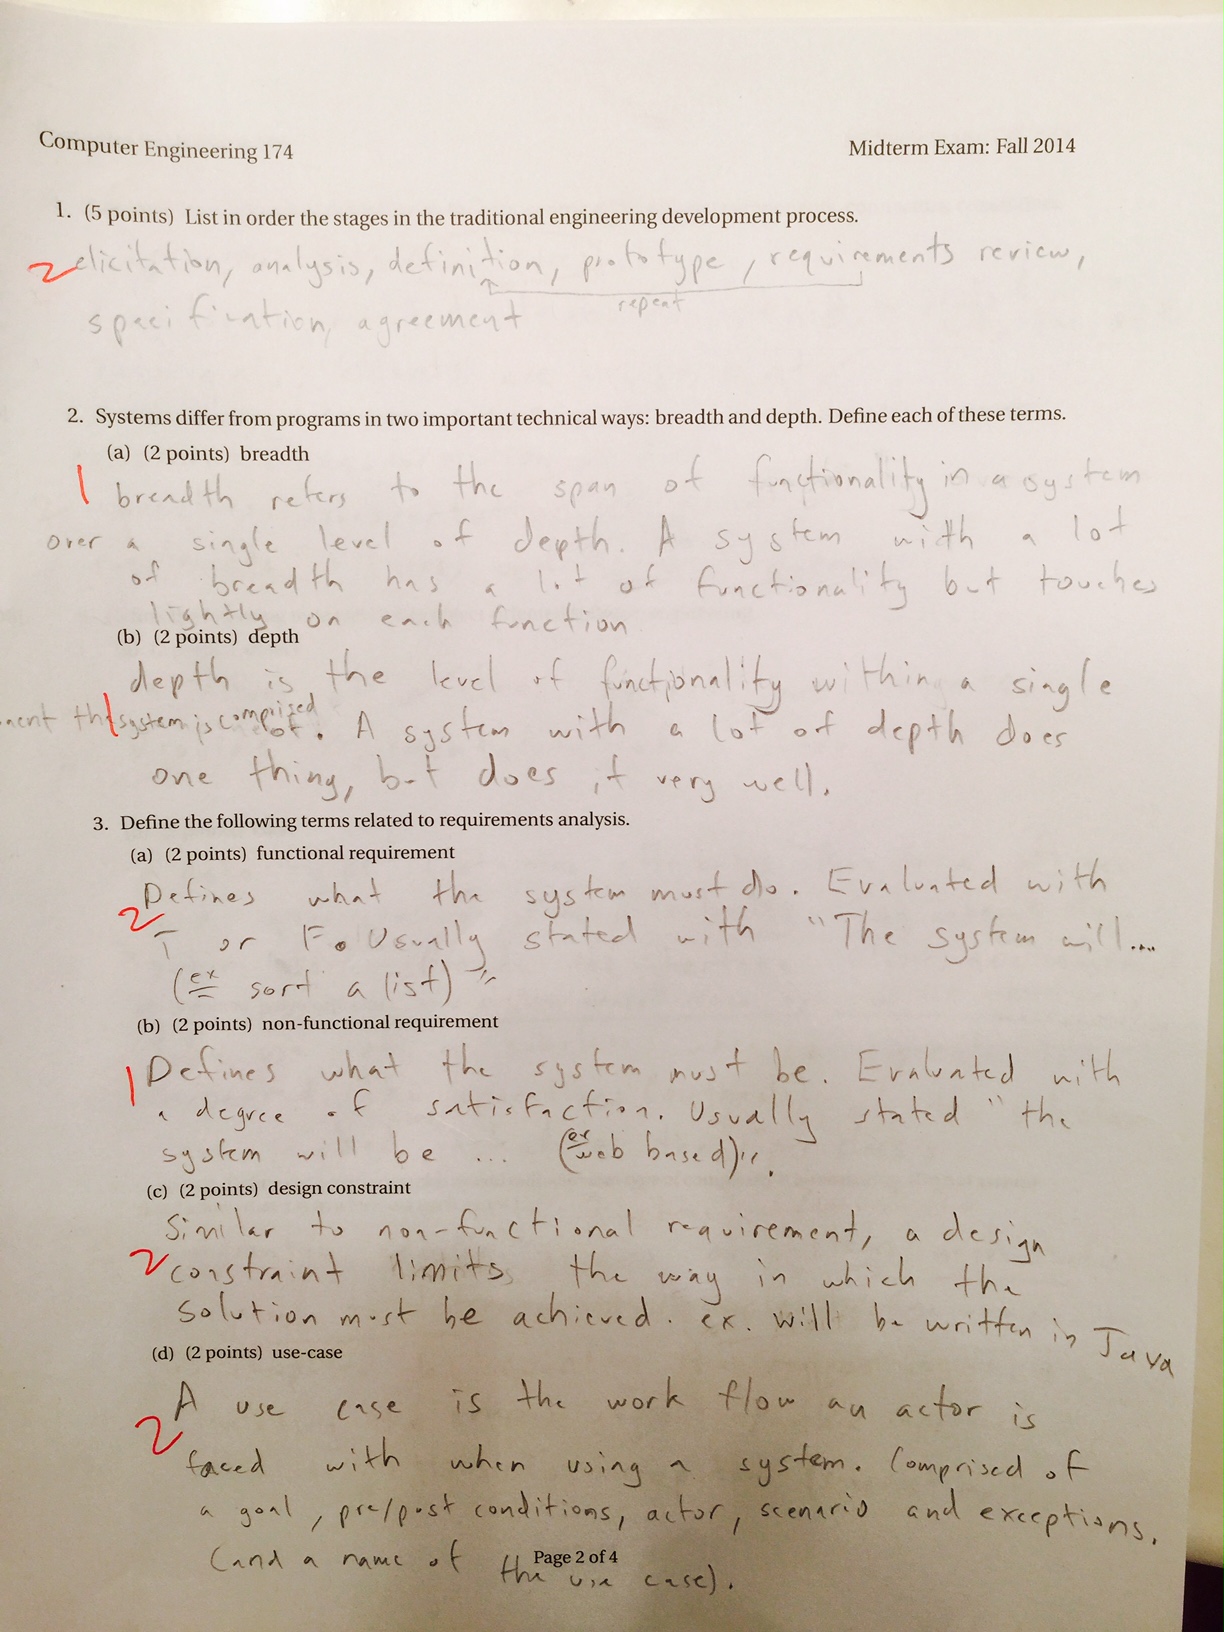 Computer Engineering 174
Midterm Exam: Fall 2014
1. (5 points) List in order the stages in the traditional engineering development process.
2 elicitation, analysis, definition, prototype, requirements review,
repeat
specification, agreement
2. Systems differ from programs in two important technical ways: breadth and depth. Define each of these terms.
(a) (2 points) breadth
1 breadth refers to the span of functionality in a system
over a single level of depth. A system with a lot
of breadth has a lot of functionality but touches
lightly on each function
(b) (2 points) depth
depth is the level of functionality within a single
nent th 1 system is comprised
of. A system with a lot of depth does
one thing, but does it very well.
3. Define the following terms related to requirements analysis.
(a) (2 points) functional requirement
2 Defines what the system must do. Evaluated with
T or F. Usually stated with "The system will....
(ex sort a list)"
(b) (2 points) non-functional requirement
1 Defines what the system must be. Evaluated with
a degree of satisfaction. Usually stated "the
system will be ... (ex web based)".
(c) (2 points) design constraint
Similar to non-functional requirement, a design
2 constraint limits the way in which the
solution must be achieved. ex. will be written in Java
(d) (2 points) use-case
2 A use case is the work flow an actor is
faced with when using a system. Comprised of
a goal, pre/post conditions, actor, scenario and exceptions.
(and a name of the use case).
Page 2 of 4